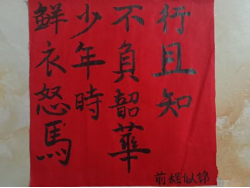 鮮衣怒馬
少年時
不負韶華
行且知
前程似錦